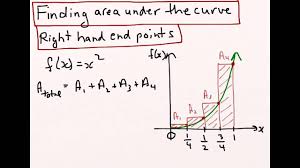 Finding area under the curve
Right hand end points
f(x) = x²
A_total = A₁ + A₂ + A₃ + A₄
f(x)
A₄
A₃
A₂
A₁
1/4
1/2
3/4
1
x